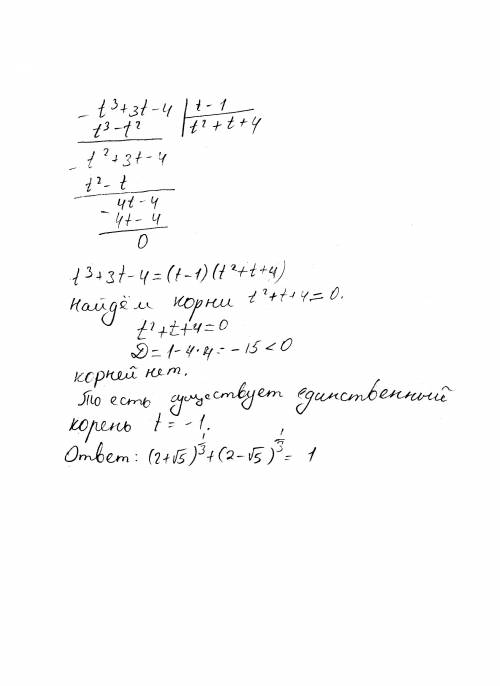 - t³+3t-4 | t-1
t³-t² | t²+t+4
- t²+3t-4
t²-t
- 4t-4
4t-4
0
t³+3t-4=(t-1)(t²+t+4)
Найдём корни t²+t+4=0.
t²+t+4=0
D=1-4·4=-15<0
корней нет.
То есть существует единственный
корень t=-1.
Ответ: (2+√5)^{1/3}+(2-√5)^{1/3}=1